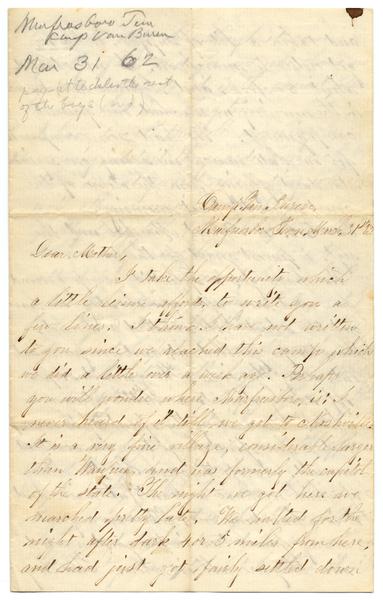 Murfresboro Tenn
Camp Van Buren
Mar 31 62
of the boys
Camp Van Buren
Murfresboro Tenn. Mch. 31st 62
Dear Mother,
I take the opportunity which
a little leisure affords, to write you a
few lines. I think I have not written
to you since we reached this camp which
we did a little over a week ago. Perhaps
you will wonder where Murfresboro, is; I
never heard of it till we got to Nashville.
It is a very fine village, considerable larger
than Wayne, and was formerly the capitol
of the state. The night we got here we
marched pretty late. We halted for the
night after dark 4 or 5 miles from here,
and had just got fairly settled down